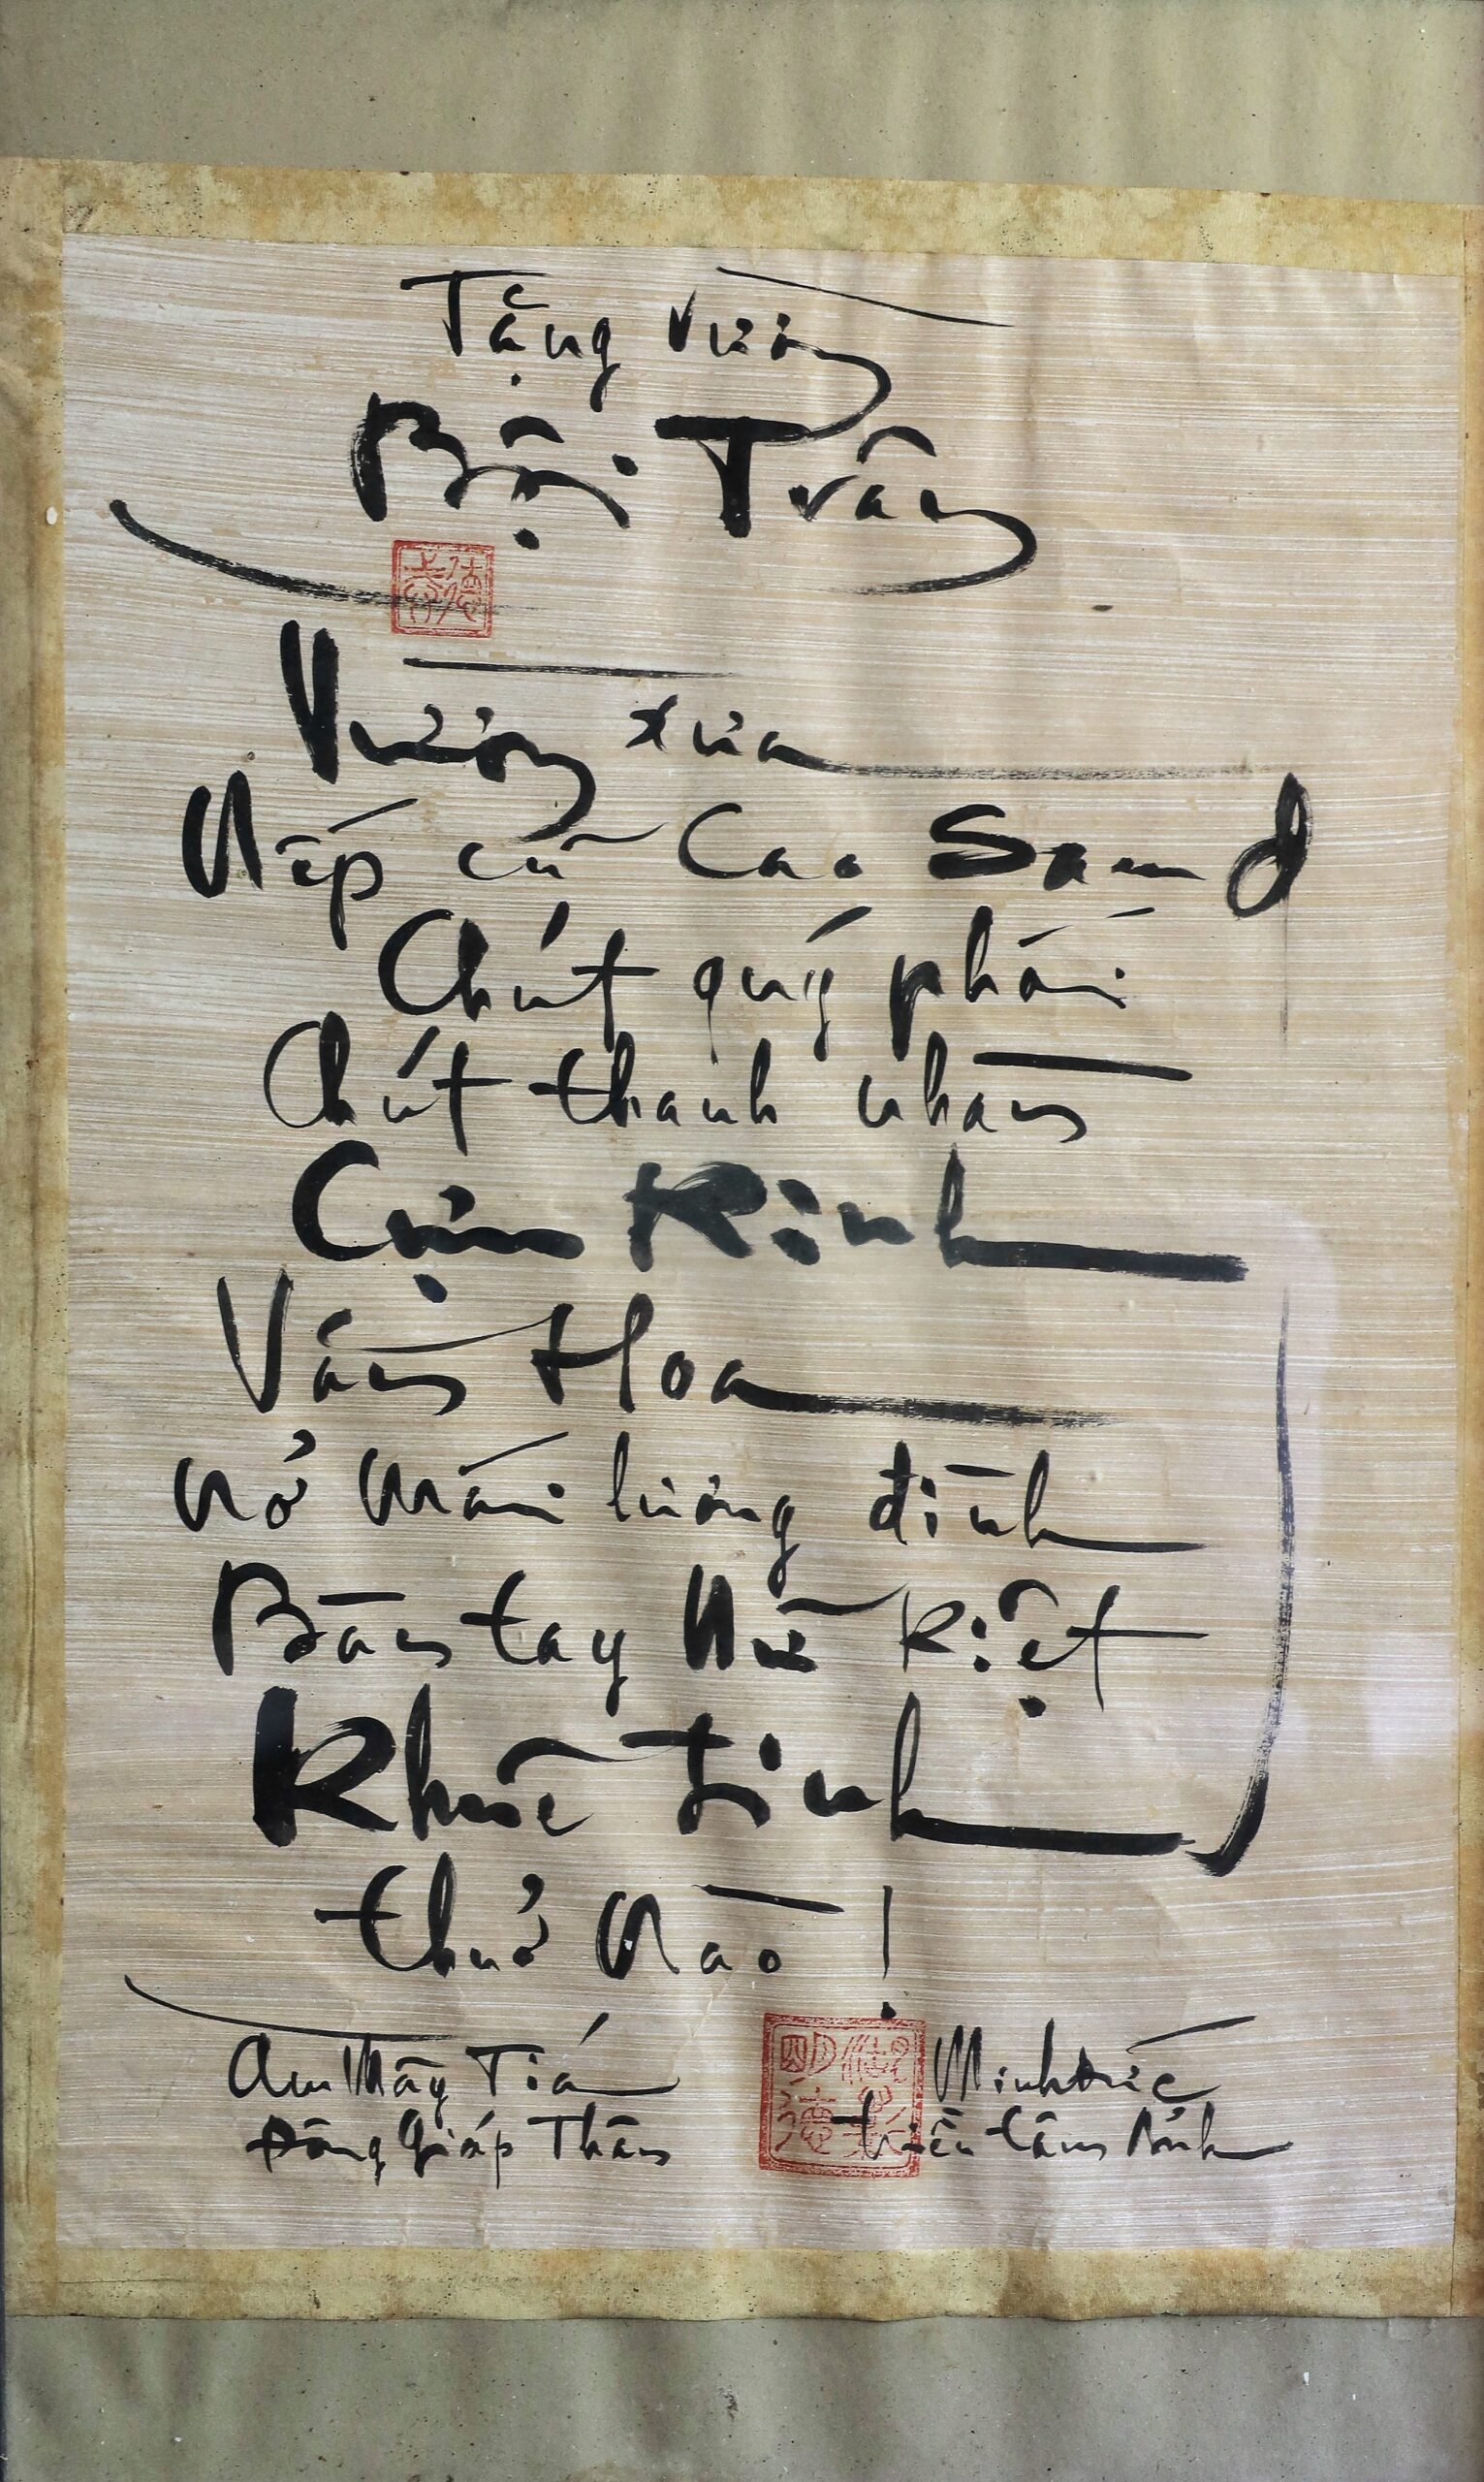 Tặng vườn
Bội Trân
Vườn xưa
Nếp cũ Cao Sang
Chút quý phái
Chút thanh nhàn
Cựu Kinh
Vấn Hoa
nở mái hương đình
Bàn tay Nữ Kiệt
Khuê tinh
thuở Nào !
Am Mây Tía
Đông Giáp Thân
Minh Đức
Triều Tâm Ảnh